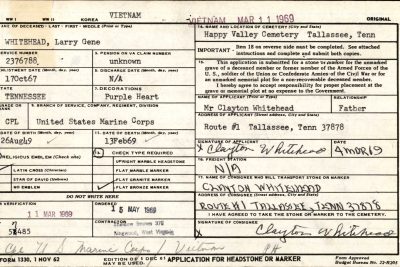 VIETNAM
VIETNAM MAR 11 1969
WW II KOREA ORIGINAL
WHITEHEAD, Larry Gene
Happy Valley Cemetery Tallassee, Tenn
IMPORTANT - Item 18 on reverse side must be completed. See attached instructions and complete and submit both copies.
SERVICE NUMBER
PENSION OR VA CLAIM NUMBER
2376788
unknown
This application is submitted for a stone or marker for the unmarked grave of a deceased member or former member of the Armed Forces of the U. S., soldier of the Union or Confederate Armies of the Civil War or for an unmarked memorial plot for a non-recoverable deceased member.
I hereby agree to accept responsibility for proper placement at the grave or memorial plot at no expense to the Government.
17Oct67
N/A
STATE
DECORATIONS
TENNESSEE
Purple Heart
NAME OF APPLICANT (Print or type)
RELATIONSHIP
Mr Clayton Whitehead
Father
BRANCH OF SERVICE, COMPANY, REGIMENT, DIVISION
CPL
United States Marine Corps
Route #1 Tallassee, Tenn 37878
DATE OF BIRTH (Month, day, year)
DATE OF DEATH (Month, day, year)
26Aug49
13Feb69
SIGNATURE OF APPLICANT
DATE
X Clayton Whitehead
4 MAR 69
RELIGIOUS EMBLEM (Check one)
CHECK TYPE REQUIRED
UPRIGHT MARBLE HEADSTONE
LATIN CROSS (Christian)
FLAT MARBLE MARKER
STAR OF DAVID (Hebrew)
FLAT GRANITE MARKER
NO EMBLEM
FLAT BRONZE MARKER
FREIGHT STATION
N/A
NAME OF CONSIGNEE WHO WILL TRANSPORT STONE OR MARKER
CLAYTON WHITEHEAD
DO NOT WRITE HERE
ROUTE #1 TALLASSEE, TENN 37878
11 MAR 1969
15 MAY 1969
I HAVE AGREED TO TAKE THE STONE OR MARKER TO THE CEMETERY.
Clayton Whitehead
Cpl U S Marine Corps / Vietnam PH
FORM 1330, 1 NOV 62
EDITION OF 1 DEC 61 MAY BE USED.
APPLICATION FOR HEADSTONE OR MARKER